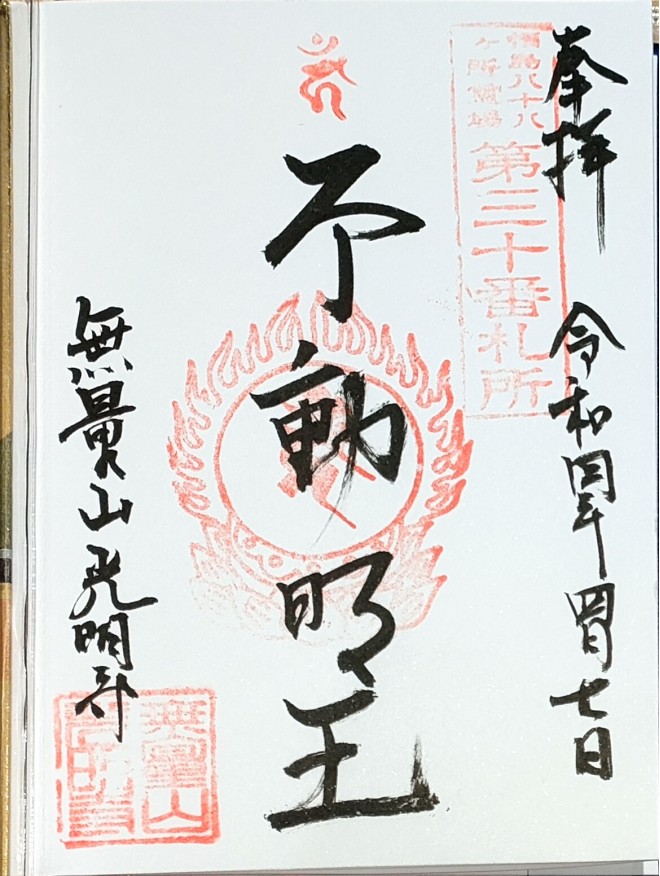 奉拝 令和四年四月七日
福島八十八
ヶ所霊場
第三十番札所
不動明王
無量山光明寺
無量山